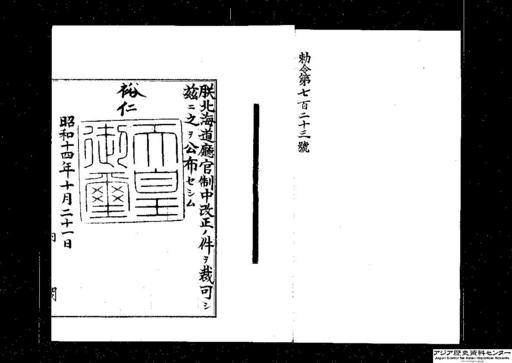 勅令第七百二十三號
朕北海道廳官制中改正ノ件ヲ裁可シ
茲ニ之ヲ公布セシム
裕仁
天皇
御璽
昭和十四年十月二十一日
アジア歴史資料センター
Japan Center for Asian Historical Records